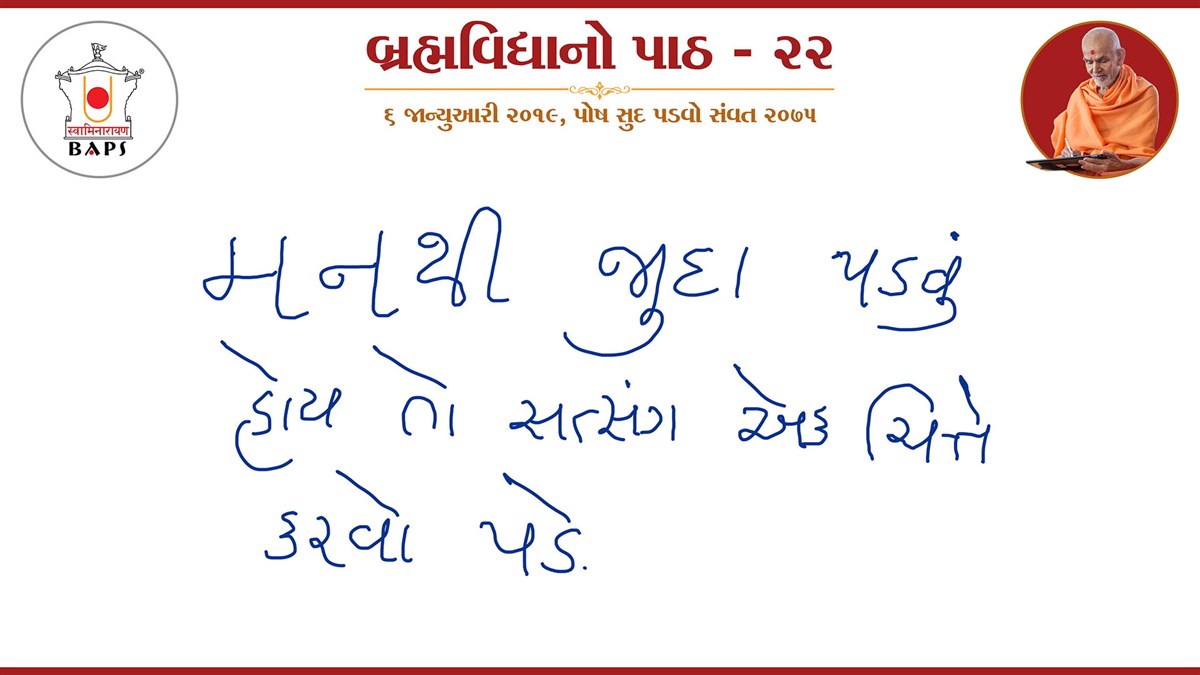 બ્રહ્મવિદ્યાનો પાઠ - ૨૨
૬ જાન્યુઆરી ૨૦૧૯, પોષ સુદ પડવો સંવત ૨૦૭૫
स्वामिनारायण
BAPS
®
મનથી જુદા પડવું
હોય તો સત્સંગ એક ચિત્તે
કરવો પડે.